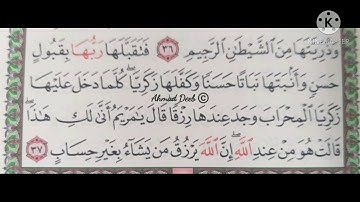 وَذُرِّيَّتَهَا مِنَ ٱلشَّيْطَٰنِ ٱلرَّجِيمِ ٣٦ فَتَقَبَّلَهَا رَبُّهَا بِقَبُولٍ
حَسَنٍ وَأَنۢبَتَهَا نَبَاتًا حَسَنًا وَكَفَّلَهَا زَكَرِيَّا ۖ كُلَّمَا دَخَلَ عَلَيْهَا
Ahmad Deeb ©
زَكَرِيَّا ٱلْمِحْرَابَ وَجَدَ عِندَهَا رِزْقًا قَالَ يَٰمَرْيَمُ أَنَّىٰ لَكِ هَٰذَا ۖ
قَالَتْ هُوَ مِنْ عِندِ ٱللَّهِ ۖ إِنَّ ٱللَّهَ يَرْزُقُ مَن يَشَآءُ بِغَيْرِ حِسَابٍ ٣٧